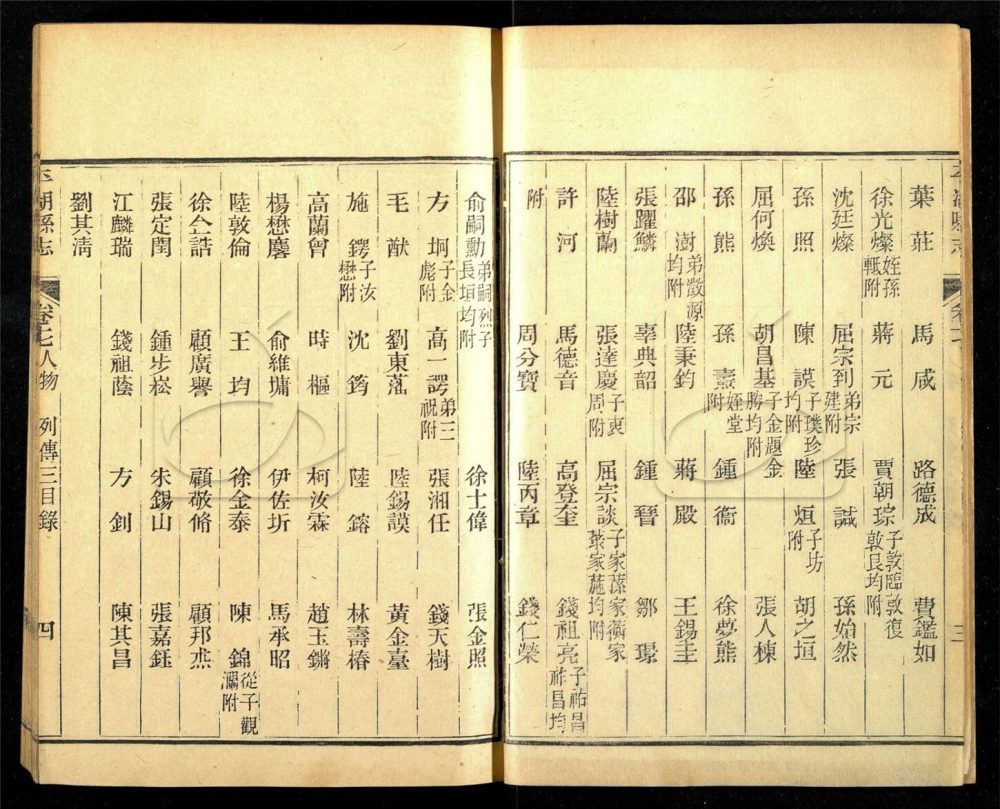 葉莊　馬咸　路德成　費鑑如
徐光燦姪孫輊附　蔣元　賈朝琮子敦臨敦復敦艮均附
沈廷燦　屈宗到弟宗建附　張誠　孫始然
孫照　陳謨子璞珍均附　陸烜子坊附　胡之垣
屈何煥　胡昌基子金題金勝均附　張人棟
孫熊　孫燾姪堂附　鍾衞　徐夢熊
邵澍弟澂源均附　陸秉鈞　蔣殿　王錫圭
張躍鱗　辜典韶　鍾晉　鄒璟
陸樹蘭　張達慶子衷周附　屈宗談子家蓀家蘅家蕖家葹均附
許河　馬德音　高登奎　錢祖亮子祐昌祚昌均
附　周分寶　陸丙章　錢仁榮
三
俞嗣勳弟嗣烈子長垣均附　徐士偉　張金照
方坰子金彪附　高一諤弟三祝附　張湘任　錢天樹
毛猷　劉東藩　陸錫謨　黃金臺
施鍔子汝懋附　沈筠　陸鎔　林壽椿
高蘭曾　時樞　柯汝霖　趙玉鏘
楊懋麐　俞維墉　伊佐圻　馬承昭
陸敦倫　王均　徐金泰　陳錦從子觀瀾附
徐仝誥　顧廣譽　顧敬脩　顧邦杰
張定閏　鍾步崧　朱錫山　張嘉鈺
江麟瑞　錢祖蔭　方釗　陳其昌
劉其淸
平湖縣志　卷七人物　列傳三目錄　四